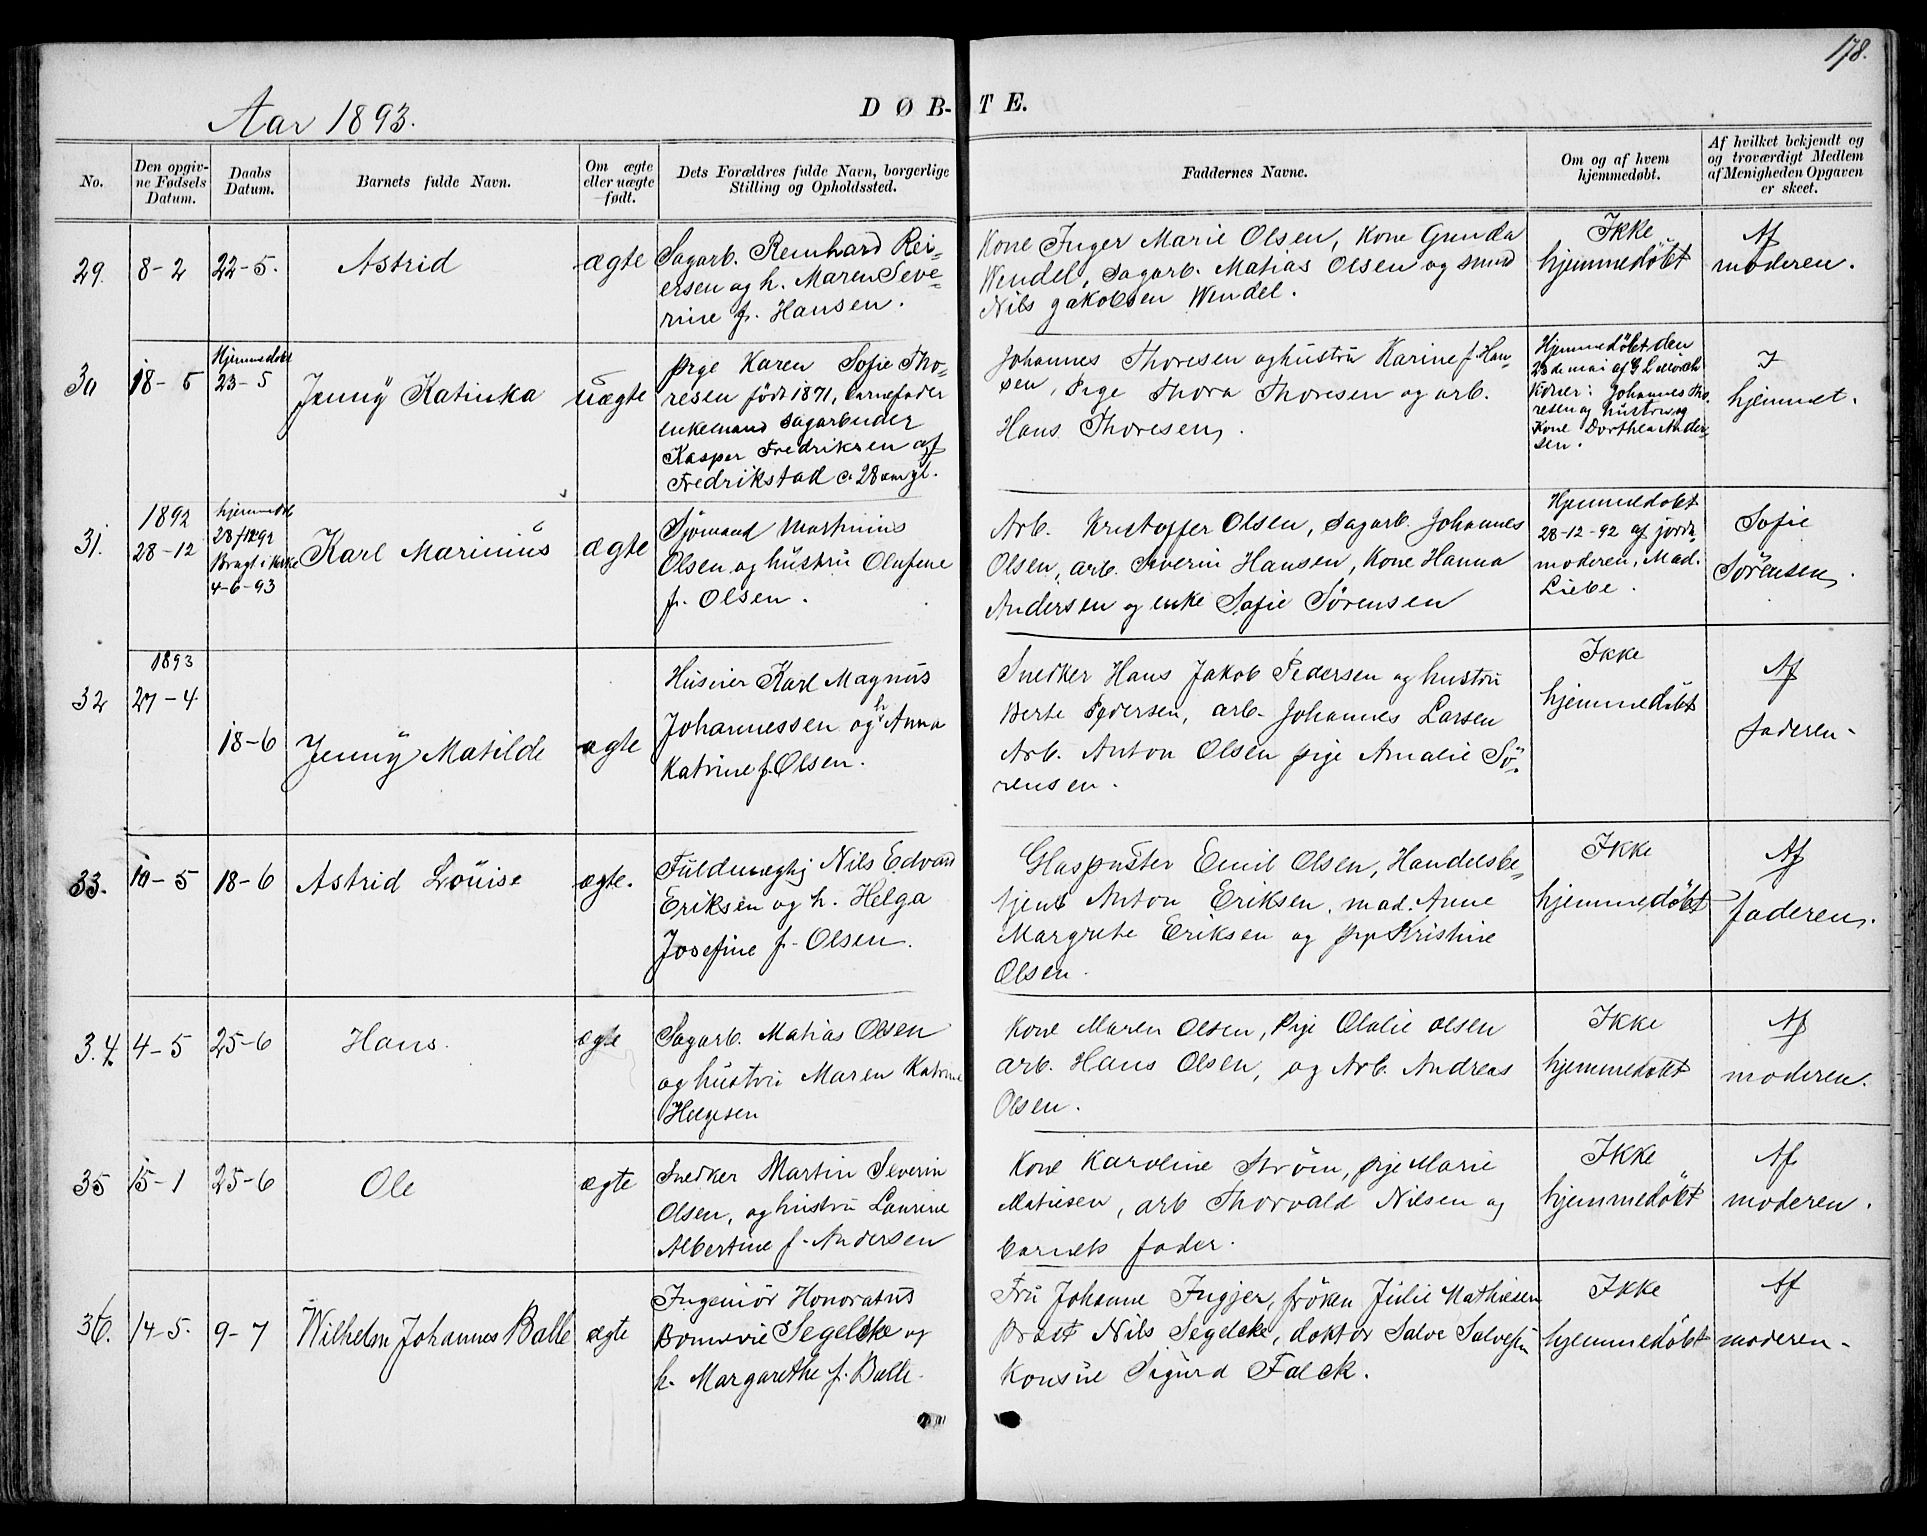 178.
Aar 1893.
DØBTE.
No.
Den opgivne Fødsels Datum.
Daabs Datum.
Barnets fulde Navn.
Om ægte eller uægte født.
Dets Forældres fulde Navn, borgerlige Stilling og Opholdssted.
Faddernes Navne.
Om og af hvem hjemmedøbt.
Af hvilket bekjendt og og troværdigt Medlem af Menigheden Opgaven er skeet.
29.
8-2
22-5.
Astrid
ægte
Sagarb. Reinhard Rei-
ersen og h. Maren Seve-
rine f. Hansen.
Kone Inger Marie Olsen, Kone Gunda
Wendel, Sagarb. Matias Olsen og smed
Nils Jakobsen Wendel.
Ikke
hjemmedøbt
Af
moderen.
30
18-5
Hjemmedøbt
23-5
Jenny Katinka
uægte
pige Karen Sofie Tho-
resen født 1871, barnefader
enkemand sagarbeider
Kasper Fredriksen af
Fredrikstad c. 28 aar gl.
Johannes Thoresen og hustru Karine f. Han-
sen, Pige Thora Thoresen og arb.
Hans Thoresen.
Hjemmedøbt den
23de mai af G L
Koner: Johannes Tho-
resen og hustru og
Kone Dorthea Ander-
sen.
I
hjemmet.
31.
1892
28-12
hjemmedøbt
28/12 92
Bragt i kirke
4-6-93
Karl Marinius
ægte
Sjømand Martinius
Olsen og hustru Olufine
f. Olsen.
Arb. Kristoffer Olsen, Sagarb. Johannes
Olsen, arb. Severin Hansen, Kone Hanna
Andersen og enke Sofie Sørensen
Hjemmedøbt
28-12-92 af jord-
moderen, Mad.
Liebe.
Sofie
Sørensen.
32
1893
27-4
18-6
Jenny Matilde
ægte
Husier Karl Magnus
Johannessen og h. Anna
Katrine f. Olsen.
Snedker Hans Jakob Pedersen og hustru
Berte Pedersen, arb. Johannes Larsen
Arb. Anton Olsen pige Amalie Sø-
rensen.
Ikke
hjemmedøbt
Af
faderen-
33.
10-5
18-6
Astrid Louise
ægte.
Fuldmægtig Nils Edvard
Eriksen og h. Helga
Josefine f. Olsen.
Glaspuster Emil Olsen, Handelsbe-
tjent Anton Eriksen, mad. Anne
Margrete Eriksen og pige Kristine
Olsen.
Ikke
hjemmedøbt
Af
faderen.
34.
4-5
25-6
Hans.
ægte
Sagarb. Matias Olsen
og hustru Maren Katrine
Helgesen
Kone Maren Olsen, Pige Olalie Olsen
arb. Hans Olsen, og Arb. Andreas
Olsen.
Ikke
hjemmedøbt
Af
moderen.
35
15-1
25-6
Ole
ægte
Snedker Martin Severin
Olsen, og hustru Laurine
Albertine f. Andersen
Kone Karoline Strøm, pige Marie
Matiesen, arb Thorvald Nilsen og
barnets fader.
Ikke
hjemmedøbt
Af
moderen.
36.
14-5.
9-7
Wilhelm Johannes Balle
ægte
Ingeniør Honoratus
Bonnevie Segelcke og
h. Margarethe f. Balle.
Fru Johanne Ingjer, frøken Julie Mathiesen
Prost Nils Segelcke, doktor Salve Salvesen
Konsul Sigurd Falck.
Ikke
hjemmedøbt
Af
moderen-